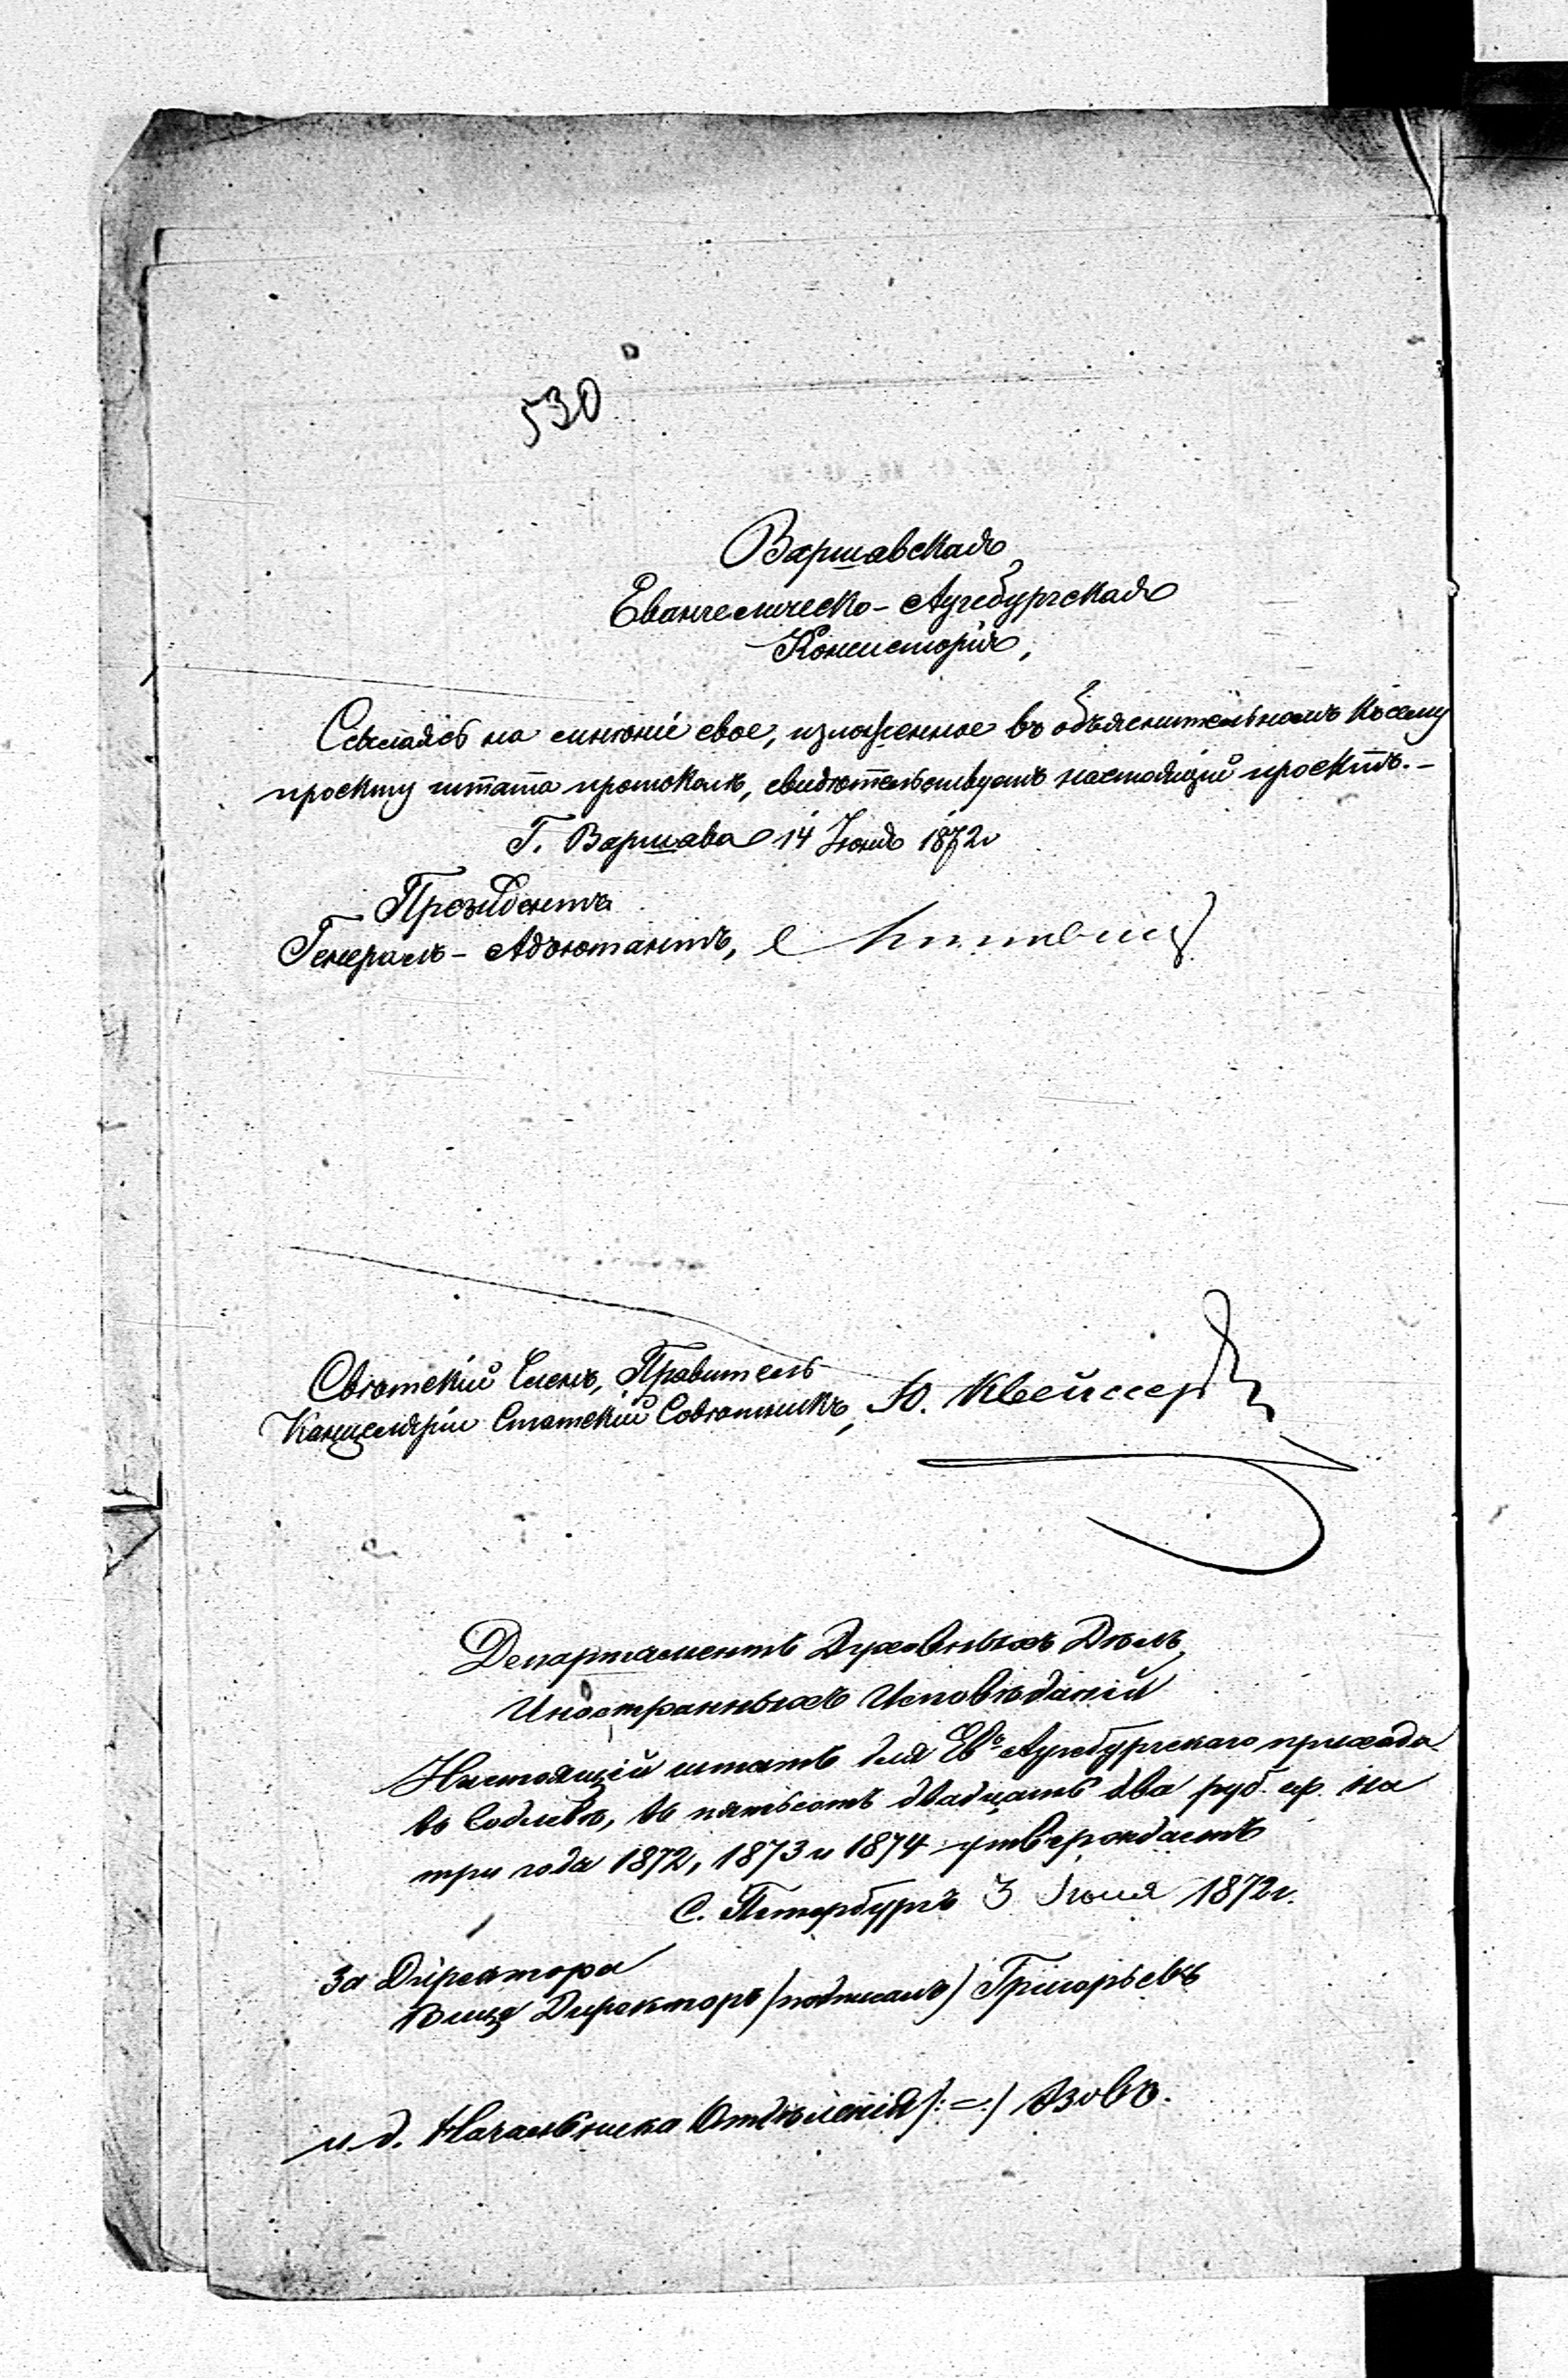 530
Варшавская
Евангелическо-Аугсбургская
Консисторія,
Ссылаясь на мнѣніе свое, изложенное въ объяснительномъ къ сему
проекту штата протоколѣ, свидѣтельствуетъ настоящій проектъ.-
Г. Варшава 14 Іюня 1872г
Президентъ
Генералъ-Адъютантъ,
Свѣтскій Членъ, Правитель
Канцеляріи Статскій Совѣтникъ, Ю. Квейссеръ
Департаментъ Духовныхъ Дѣлъ
Иностранныхъ Исповѣданій
Настоящій штатъ для Ев. Аугсбургскаго прихода
въ, въ пятьсотъ двадцать два руб. ср. на
три года 1872, 1873 и 1874 утверждаетъ
С. Петербургъ 3 Іюля 1872г.
За Директора
Вице Директоръ /подписалъ/ Григорьевъ
и. д. Начальника Отдѣленія /:=:/ Азовъ.